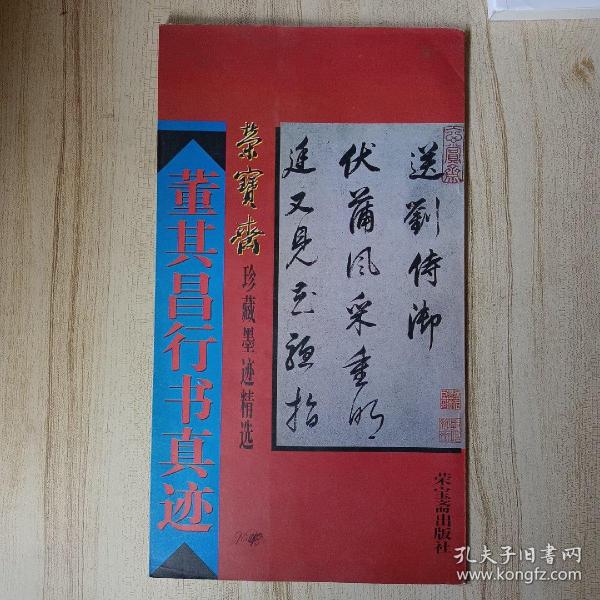 送劉侍御
伏蒲風采重明
廷又見
指
榮寶齋
珍藏墨迹精选
董其昌行书真迹
荣宝斋出版社
孔夫子旧书网
www.kongfz.com